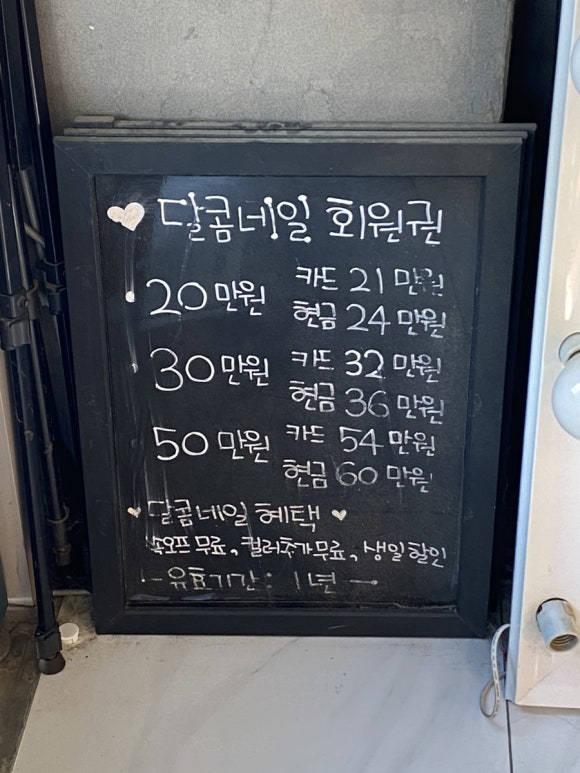 달콤네일 회원권
20만원 카드 21만원
현금 24만원
30만원 카드 32만원
현금 36만원
50만원 카드 54만원
현금 60만원
달콤네일 혜택
쏙오프 무료, 컬러추가 무료, 생일할인
- 유효기간 : 1년 -